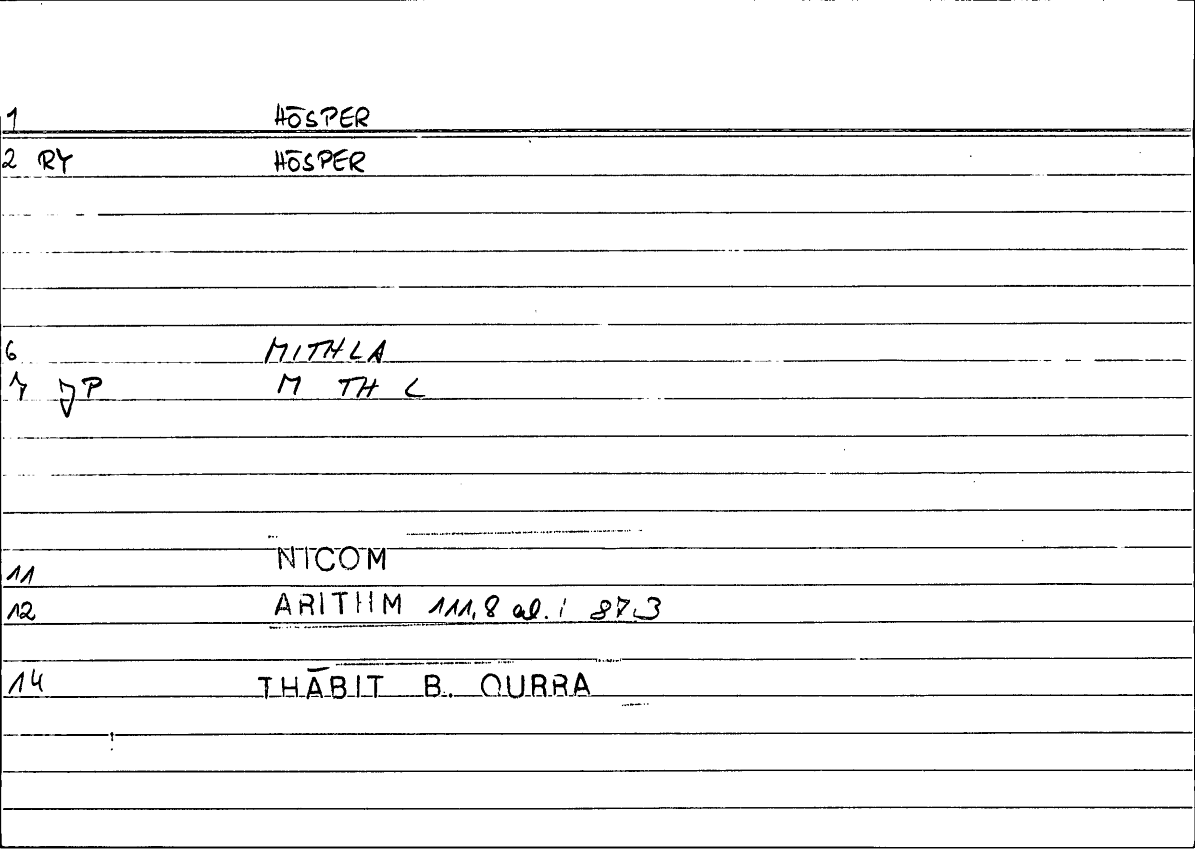 1 HŌSPER
2 RY HŌSPER
6 MITHLA
7 JP M TH L
11 NICOM
12 ARITHM 111,8 al. i 87.3
14 THĀBIT B. QURRA